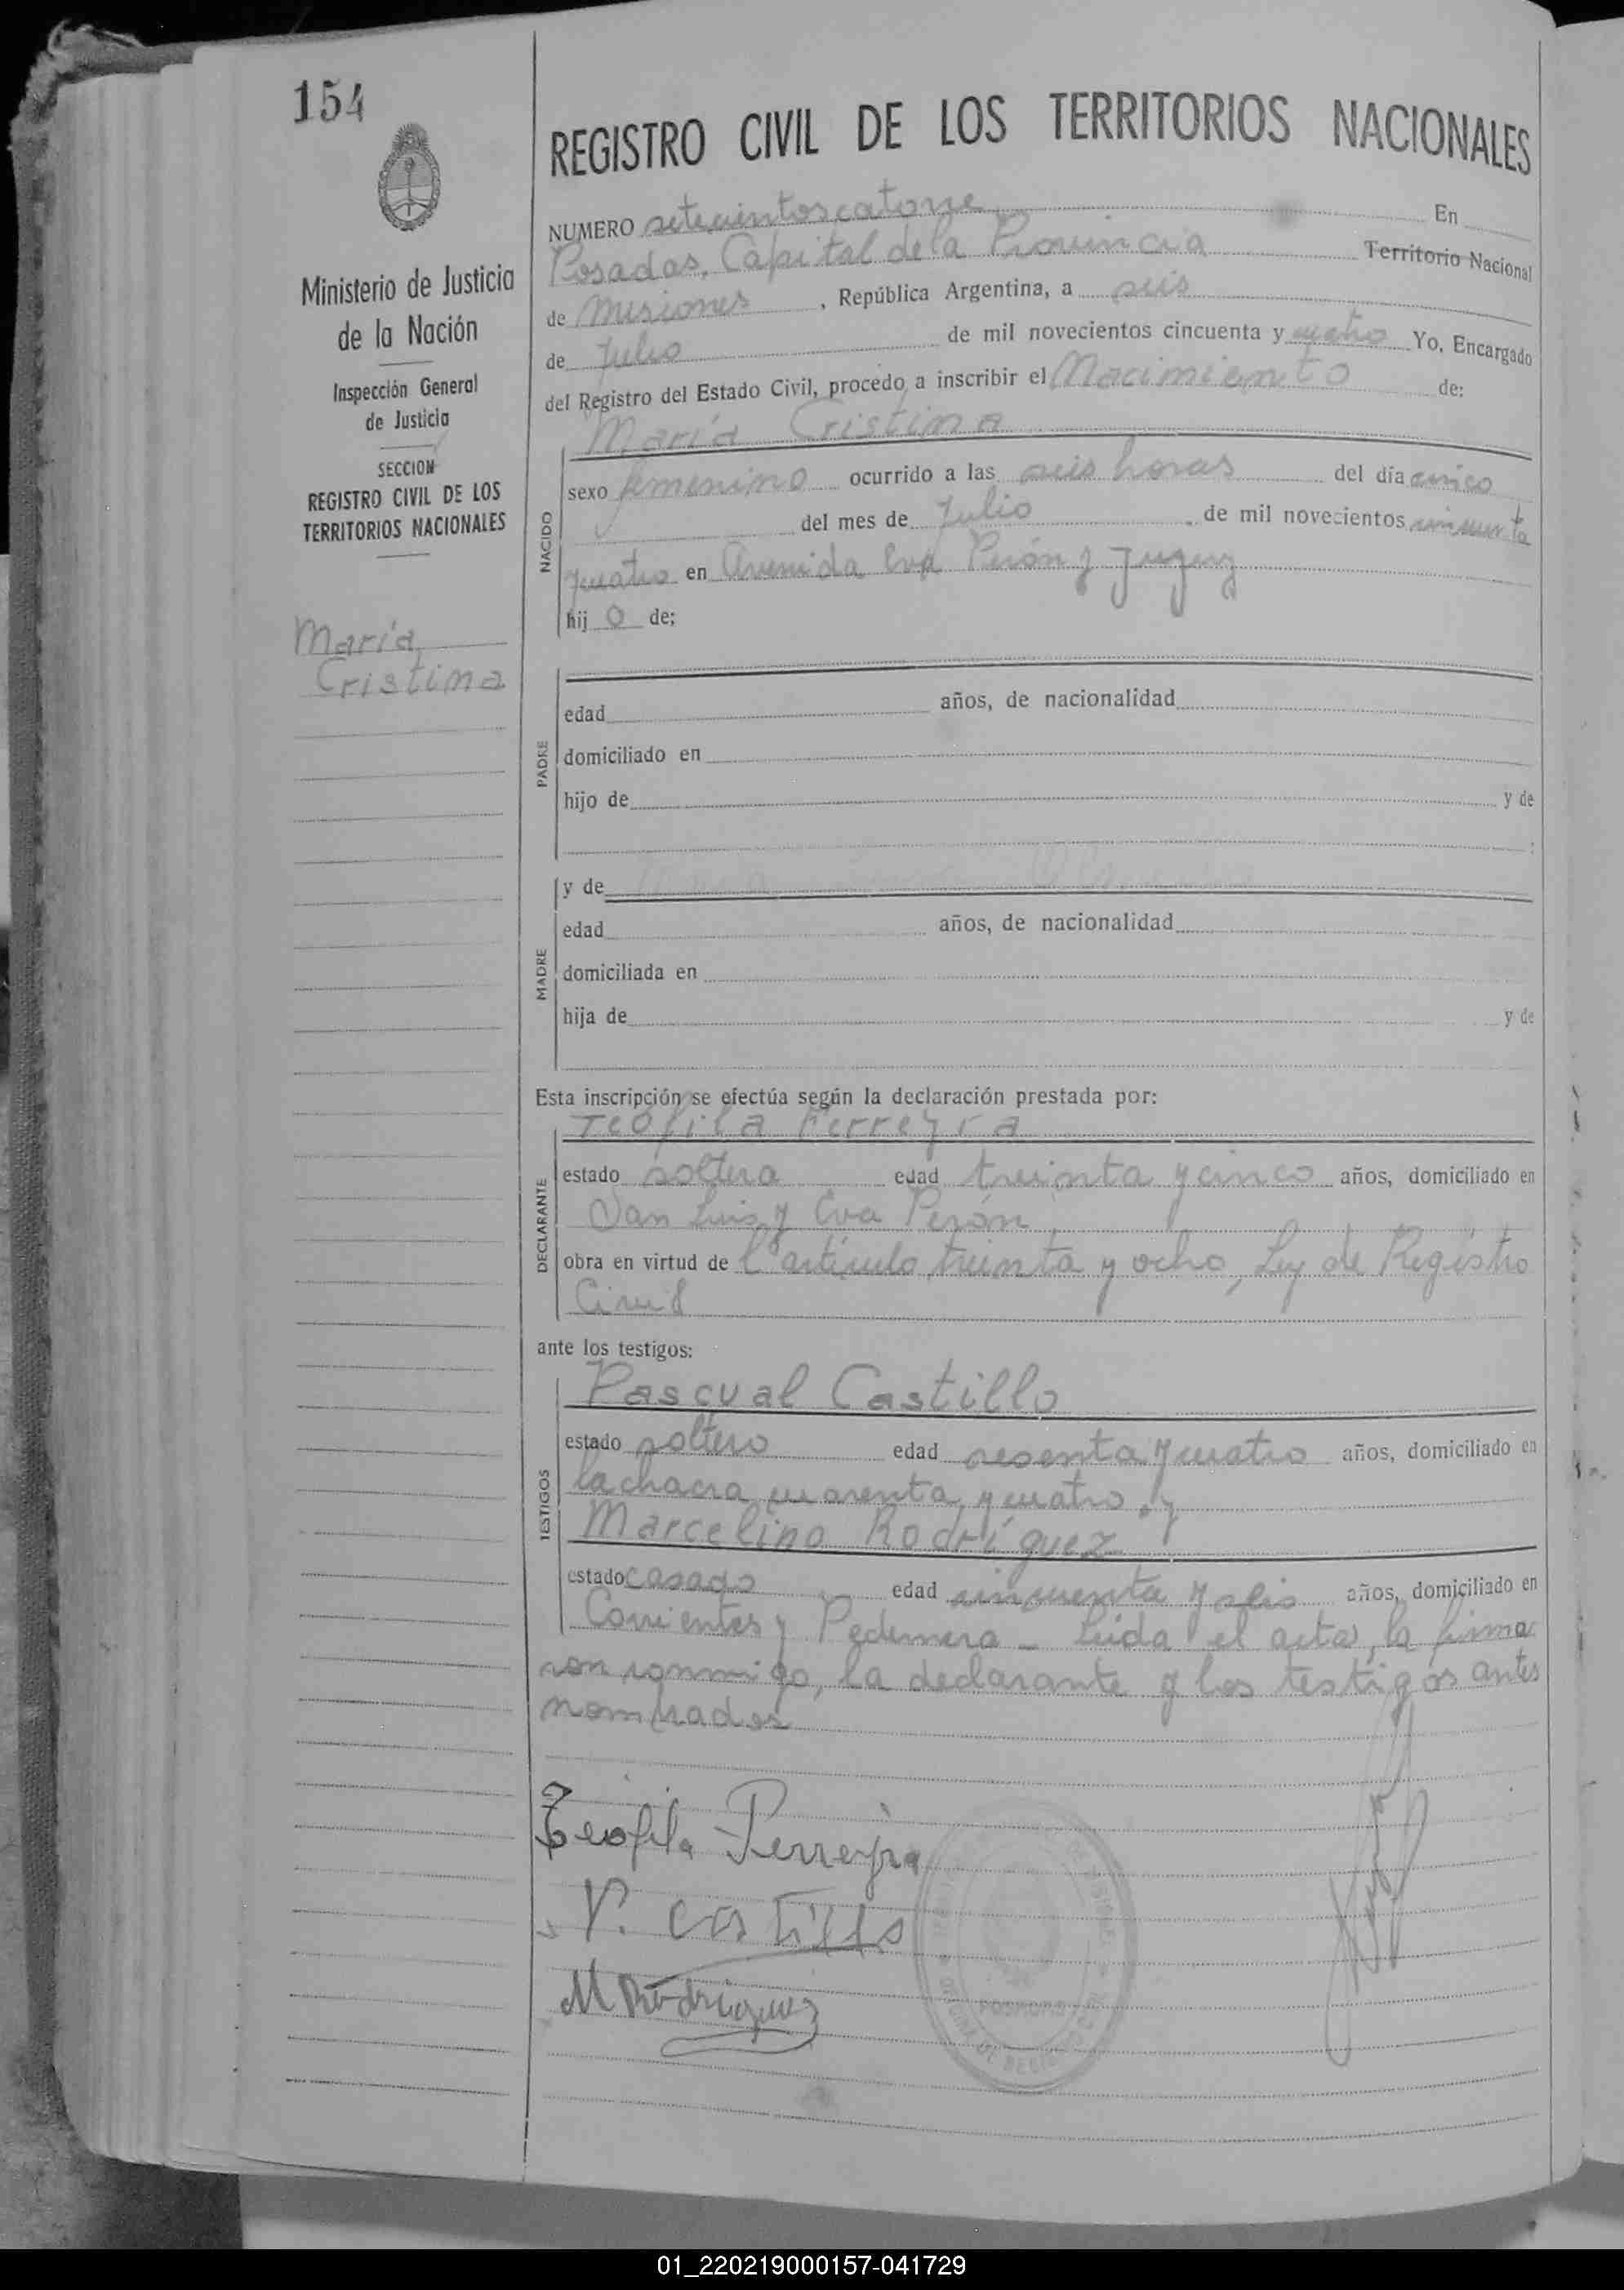 154
REGISTRO CIVIL DE LOS TERRITORIOS NACIONALES
Ministerio de Justicia
de la Nación
Inspección General
de Justicia
SECCION
REGISTRO CIVIL DE LOS
TERRITORIOS NACIONALES
María
Cristina
NUMERO setecientos catorce En
Posadas, Capital de la Provincia Territorio Nacional
de Misiones, República Argentina, a seis
de Julio de mil novecientos cincuenta y cuatro Yo, Encargado
del Registro del Estado Civil, procedo a inscribir el Nacimiento de:
María Cristina
NACIDO
sexo femenino ocurrido a las seis horas del día cinco
del mes de Julio de mil novecientos cincuenta
y cuatro en Avenida Eva Perón y Jujuy
hij o de;
PADRE
edad años, de nacionalidad
domiciliado en
hijo de y de
;
MADRE
y de
edad años, de nacionalidad
domiciliada en
hija de y de
Esta inscripción se efectúa según la declaración prestada por:
Teófila Ferreyra
DECLARANTE
estado soltera edad treinta y cinco años, domiciliado en
San Luis y Eva Perón
obra en virtud de l'artículo treinta y ocho, Ley de Registro
Civil
ante los testigos:
TESTIGOS
Pascual Castillo
estado soltero edad sesenta y cuatro años, domiciliado en
la chacra cuarenta y cuatro, y
Marcelino Rodríguez
estado casado edad cincuenta y seis años, domiciliado en
Corrientes y Pedernera - Leída el acta, la firma
ron conmigo, la declarante y los testigos antes
nombrados
Teofila Ferreyra
P. Castillo
M Rodriguez
POSADAS
01_220219000157-041729